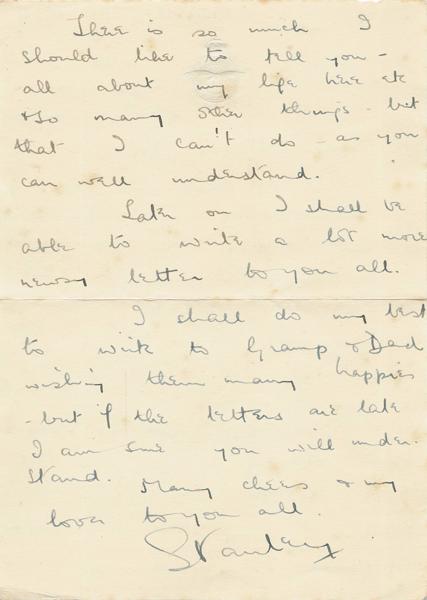 There is so much I
should like to tell you -
all about my life here etc
& so many other things - but
that I can't do - as you
can well understand.
Later on I shall be
able to write a lot more
newsy letter to you all.
I shall do my best
to write to Gramp & Dad
wishing them many happies
- but if the letters are late
I am sure you will under-
stand. Many cheers & my
love to you all.
Stanley